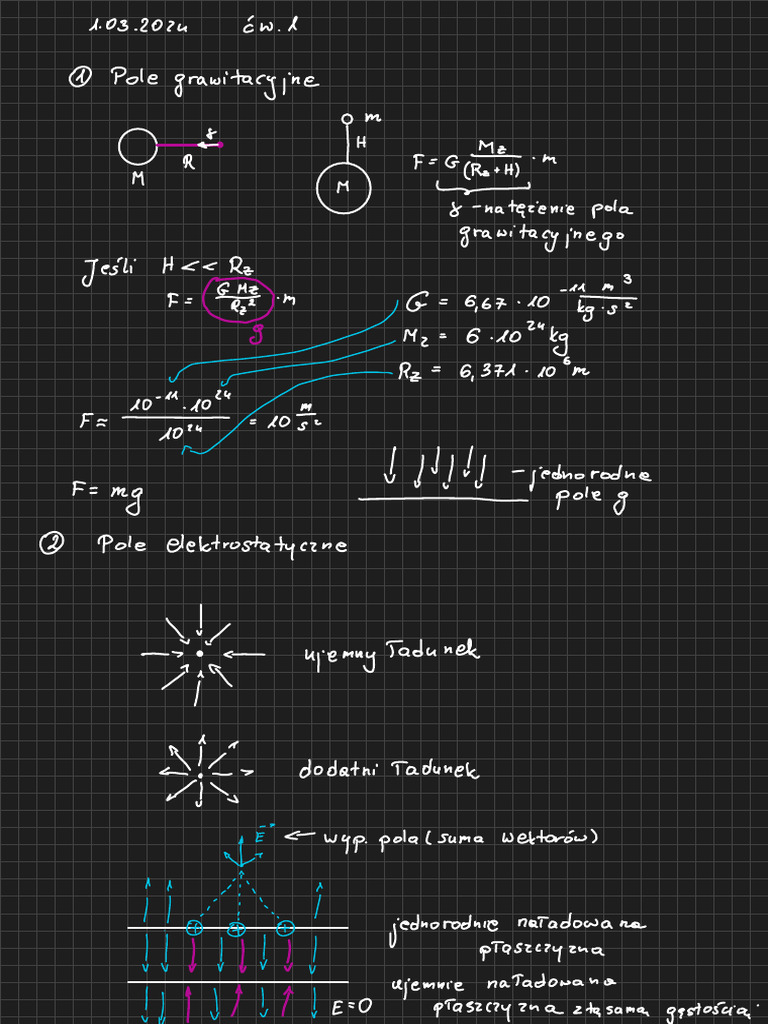 1.03.2024 ćw.1
① Pole grawitacyjne
γ
R
M
m
H
M
F = G Mz/(Rz+H) · m
γ - natężenie pola
grawitacyjnego
Jeśli H << Rz
F = G Mz/Rz² · m
g
G = 6,67 · 10⁻¹¹ m³/kg · s²
Mz = 6 · 10²⁴ kg
Rz = 6,371 · 10⁶ m
F ≈ 10⁻¹¹ · 10²⁴/10²⁴ = 10 m/s²
F = mg
- jednorodne
pole g
② Pole elektrostatyczne
ujemny ładunek
dodatni ładunek
E⃗ ← wyp. pola (suma wektorów)
+ + +
jednorodnie naładowana
płaszczyzna
ujemnie naładowana
E=0 płaszczyzna z tą samą gęstością